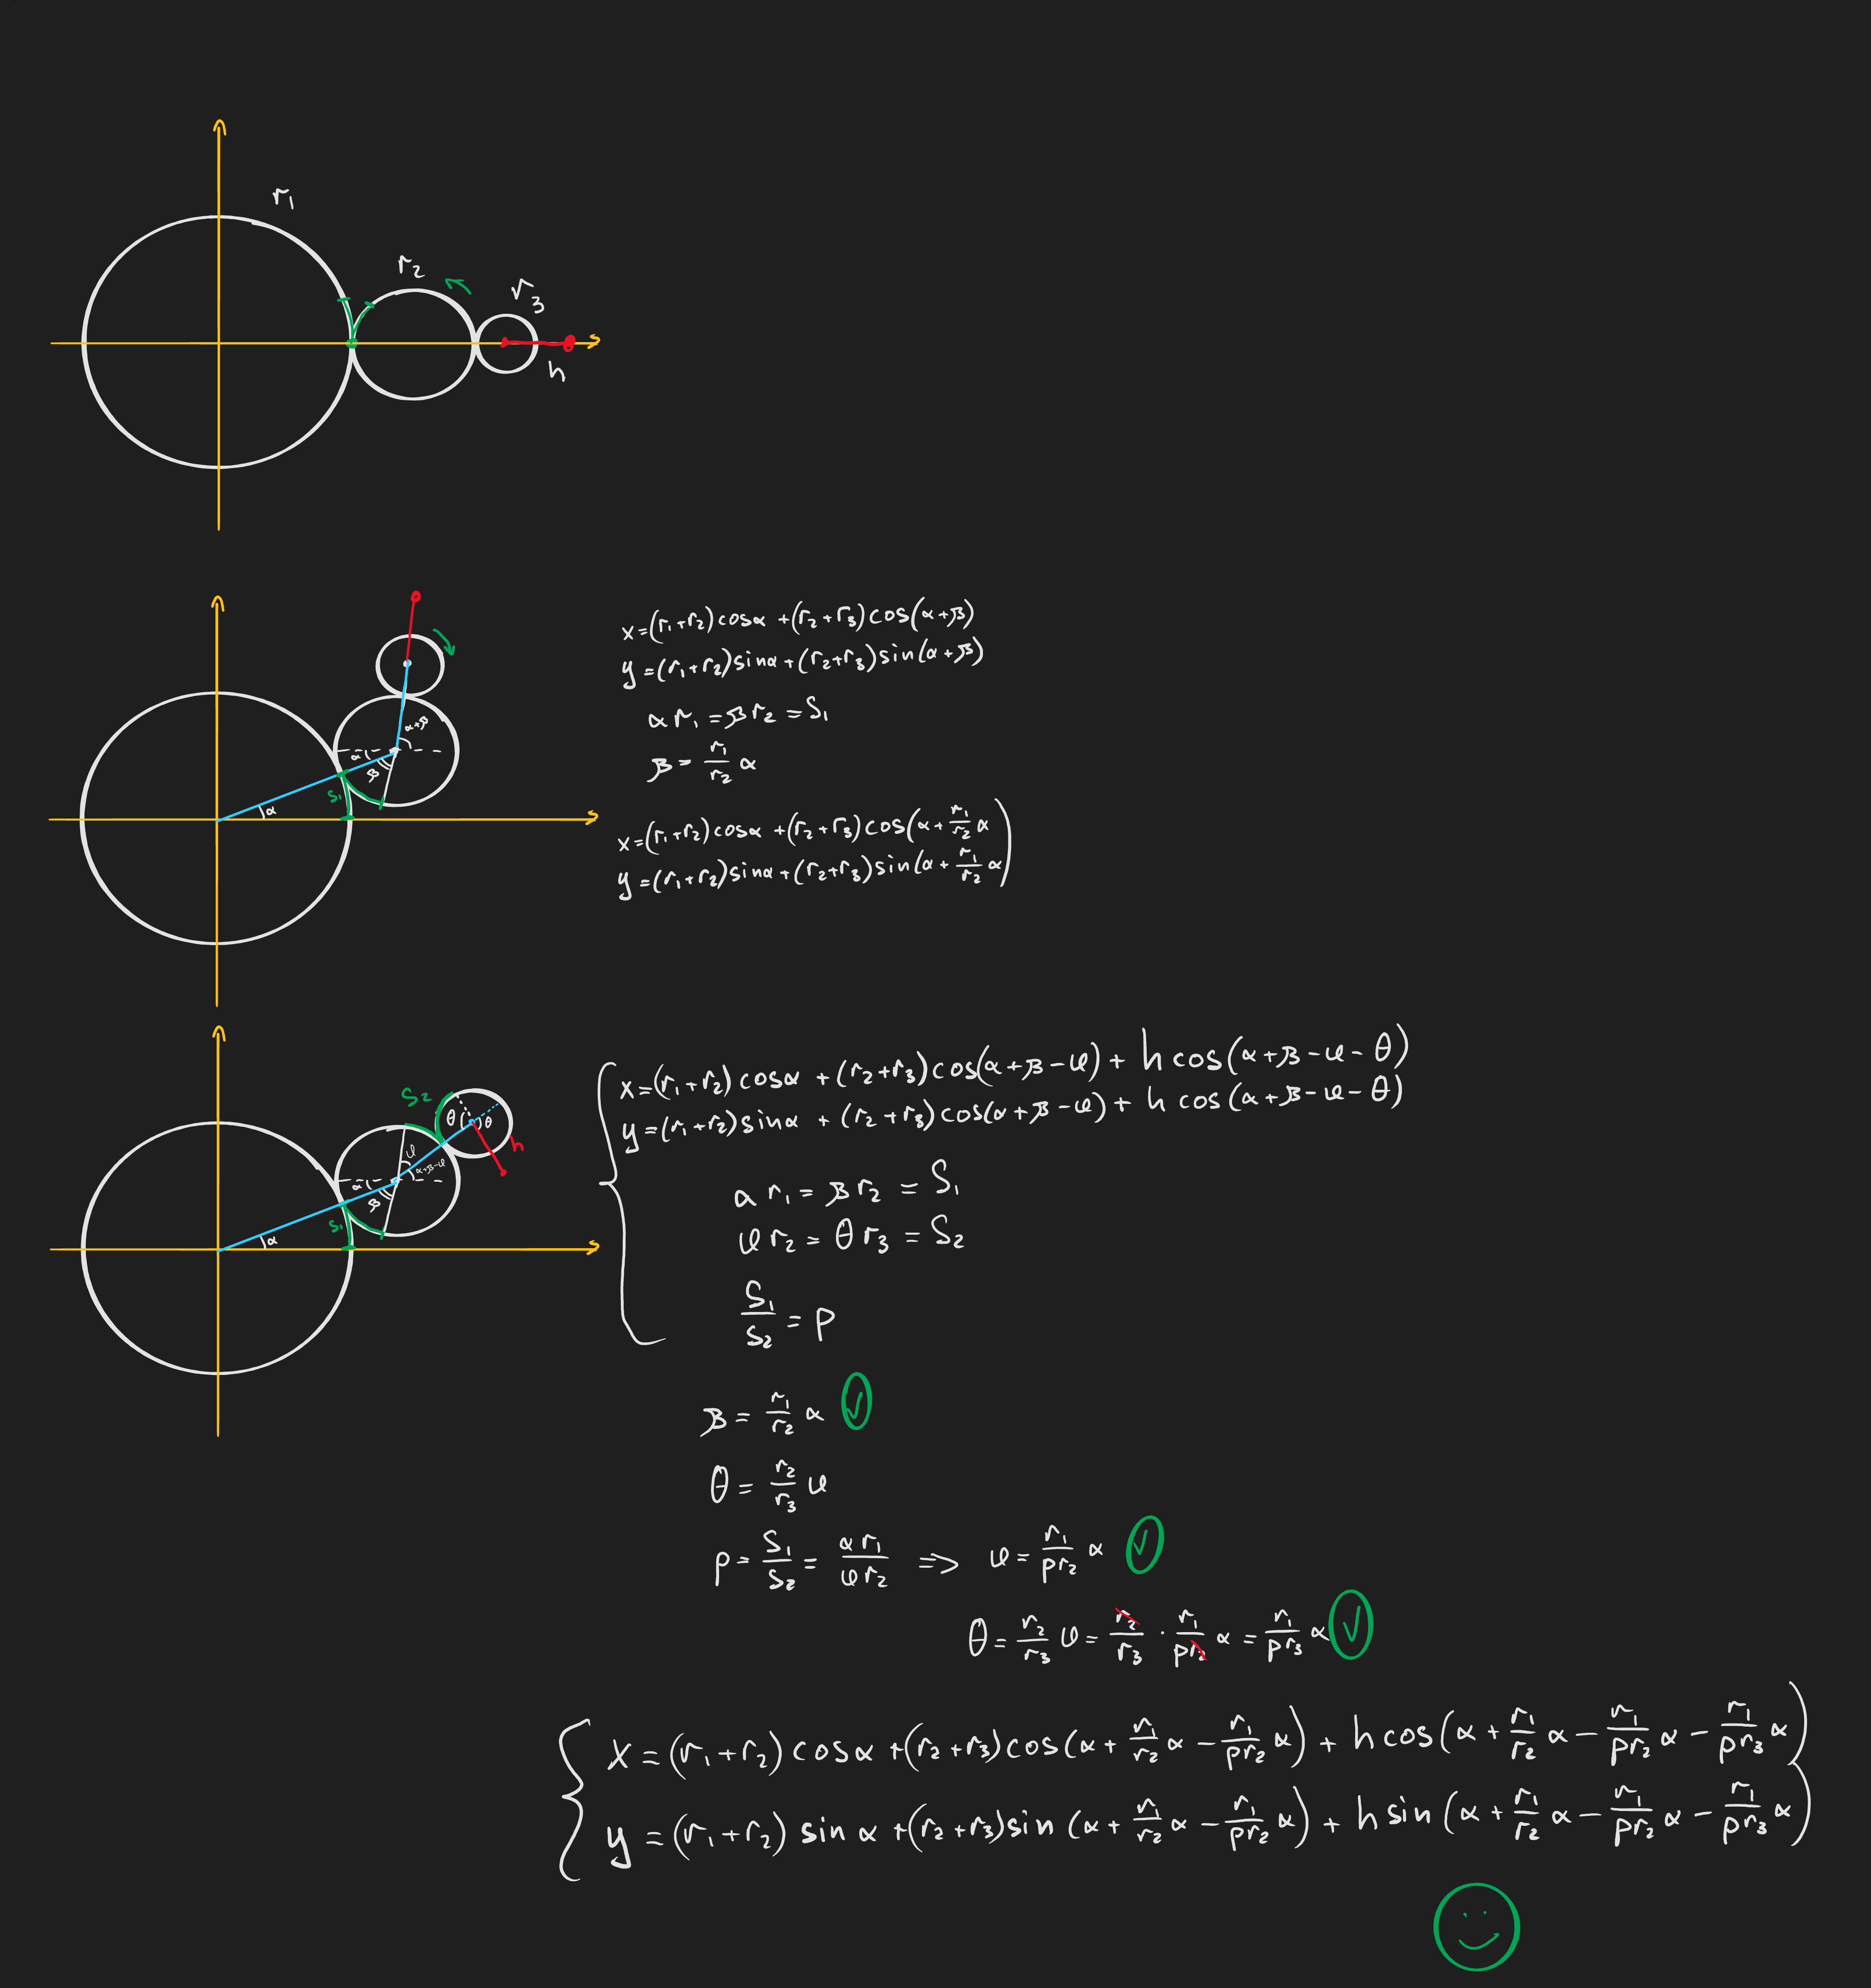 r₁
r₂
r₃
h
x=(r₁+r₂)cosα+(r₂+r₃)cos(α+β)
y=(r₁+r₂)sinα+(r₂+r₃)sin(α+β)
αr₁=βr₂=S₁
β=r₁/r₂ α
x=(r₁+r₂)cosα+(r₂+r₃)cos(α+r₁/r₂ α)
y=(r₁+r₂)sinα+(r₂+r₃)sin(α+r₁/r₂ α)
α+β
α
β
S₁
α
x=(r₁+r₂)cosα+(r₂+r₃)cos(α+β-φ)+h cos(α+β-φ-θ)
y=(r₁+r₂)sinα+(r₂+r₃)cos(α+β-φ)+h cos(α+β-φ-θ)
S₂
θ
θ
h
φ
α+β-φ
α
β
S₁
α
αr₁=βr₂=S₁
φr₂=θr₃=S₂
S₁/S₂=p
β=r₁/r₂ α
θ=r₂/r₃ φ
p=S₁/S₂=αr₁/φr₂ => φ=r₁/pr₂ α
θ=r₂/r₃ φ=r₂/r₃·r₁/pr₂ α=r₁/pr₃ α
x=(r₁+r₂)cosα+(r₂+r₃)cos(α+r₁/r₂ α-r₁/pr₂ α)+h cos(α+r₁/r₂ α-r₁/pr₂ α-r₁/pr₃ α)
y=(r₁+r₂)sinα+(r₂+r₃)sin(α+r₁/r₂ α-r₁/pr₂ α)+h sin(α+r₁/r₂ α-r₁/pr₂ α-r₁/pr₃ α)